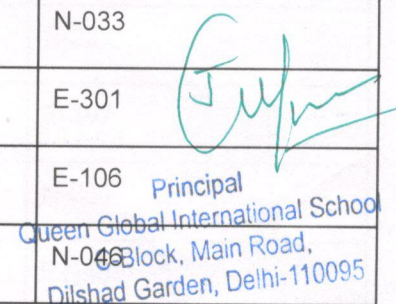 N-033
E-301
E-106
Principal
Queen Global International School
N-046
Block, Main Road,
Dilshad Garden, Delhi-110095